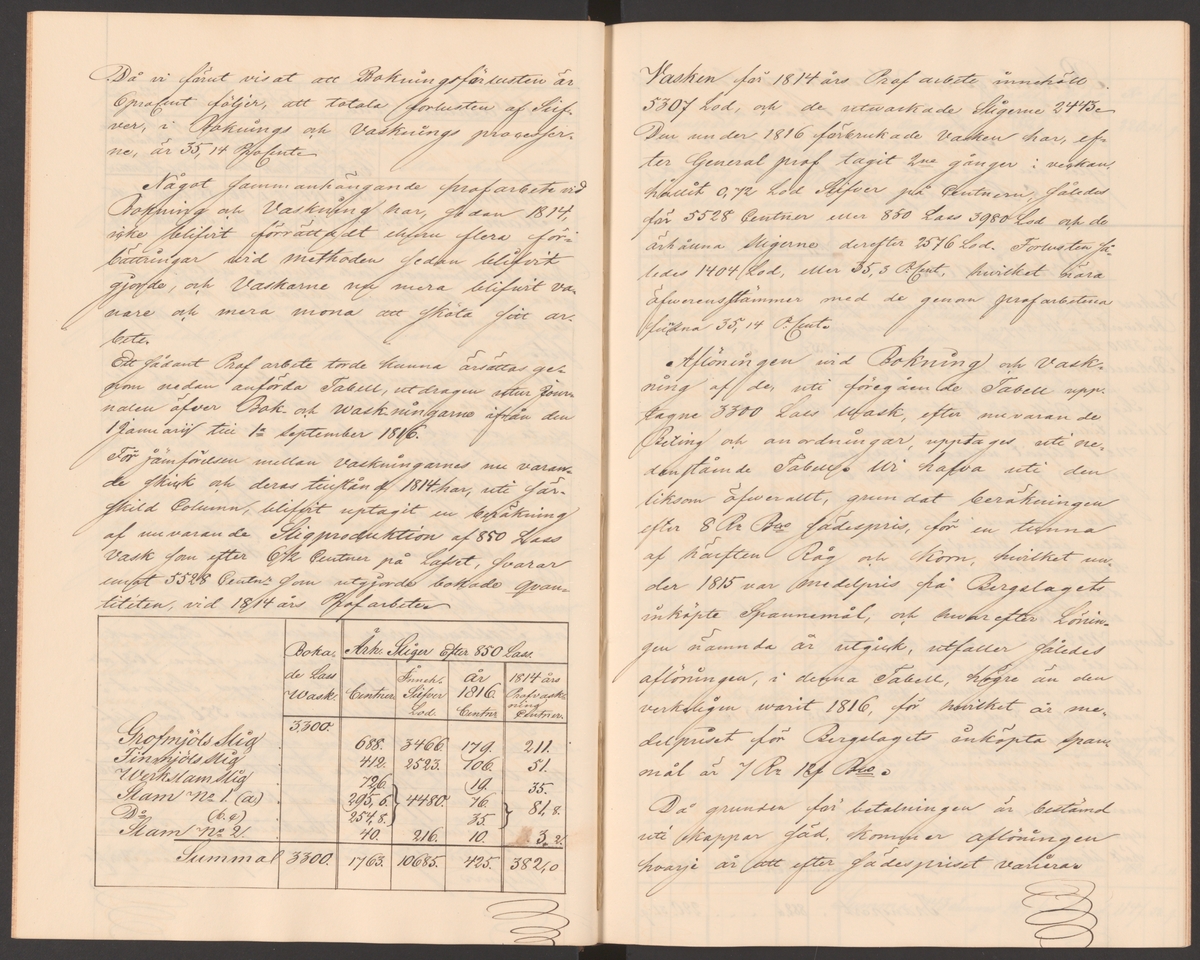 Då vi förut visat att Bokningsförlusten är
6 proCent följer, att totala förlusten af Silf-
ver, i Boknings och Vasknings processer-
ne, är 35,14 ProCent.
Något sammanhängande profarbete vid
Bokning och Vaskning har, sedan 1814,
icke blifvit förrättadt ehuru flera för-
bättringar vid methoden sedan blifvit
gjorde, och Vaskarne nu mera blifvit va-
nare och mera mona att sköta sitt ar-
bete.
Ett sådant Prof arbete torde kunna ersättas ge-
nom nedan anförda Tabell, utdragen utur Jour-
nalen öfver Bok- och Waskningarne ifrån den
1 Januarij till 1a September 1816.
För jämförelsen mellan Vaskningarnes nu varan-
de skick och deras tillstånd 1814 har, uti sär-
skild Column, blifvit uptagit en beräkning
af nuvarande Sligproduktion af 850 Lass
Vask som efter 6½ Centner på Lasset, svarar
emot 5528 Centnr som utgjorde bokade quan-
titeten, vid 1814 års Profarbete.
Boka- Årk. Sliger Efter 850 Lass.
de Lass Inneh. år 1814 års
Wask. Centner Silfver 1816 Profvask-
Lod. Centnr ning Centner.
3300.
Grofmjöls Slig 688. 3466. 179. 211.
Finmjöls Slig 412. 2523. 106. 51.
Werkslam Slig 72,6. 19. 35.
Slam No 1. (a) 295,6. 4480. 76. 81,8.
Do (b.c) 254,8. 35.
Slam No 2. 40. 216. 10. 3,2.
Summa 3300. 1763. 10685. 425. 382,0
Vasken för 1814 års Prof arbete innehöll
5307 Lod, och de utvaskade Sligerne 2443.
Den under 1816 förbrukade Vasken har, ef-
ter General prof tagit 2ne gånger i veckan,
hållit 0,72 Lod Silfver på Centnern, således
för 5528 Centner eller 850 Lass 3980 Lod och de
erhållna sligerne derefter 2576 Lod. Förlusten så-
ledes 1404 Lod, eller 35,3 P.Cent, hvilket nära
öfverensstämmer med de genom profarbetena
fundna 35,14 P.Cent.
Aflöningen vid Bokning och Vask-
ning af de, uti föregående Tabell upp-
tagne 3300 Lass Wask, efter nuvarande
Beting och anordningar, upptages uti ne-
danstående Tabell. Vi hafva uti den
liksom öfverallt, grundat beräkningen
efter 8 Rr Bco sädespris, för en tunna
af hälften Råg och Korn, hvilket un-
der 1815 var medelpris på Bergslagets
inköpte Spannemål, och hvarefter Lönin-
gen nämnda år utgick, utfaller således
aflöningen, i denna Tabell, högre än den
verkeligen warit 1816, för hvilket år me-
delpriset för Bergslagets inköpta span-
mål är 7 Rr 12 f Bco.
Då grunden för betalningen är bestämd
uti kappar säd, kommer aflöningen
hvarje år att efter sädespriset variera.